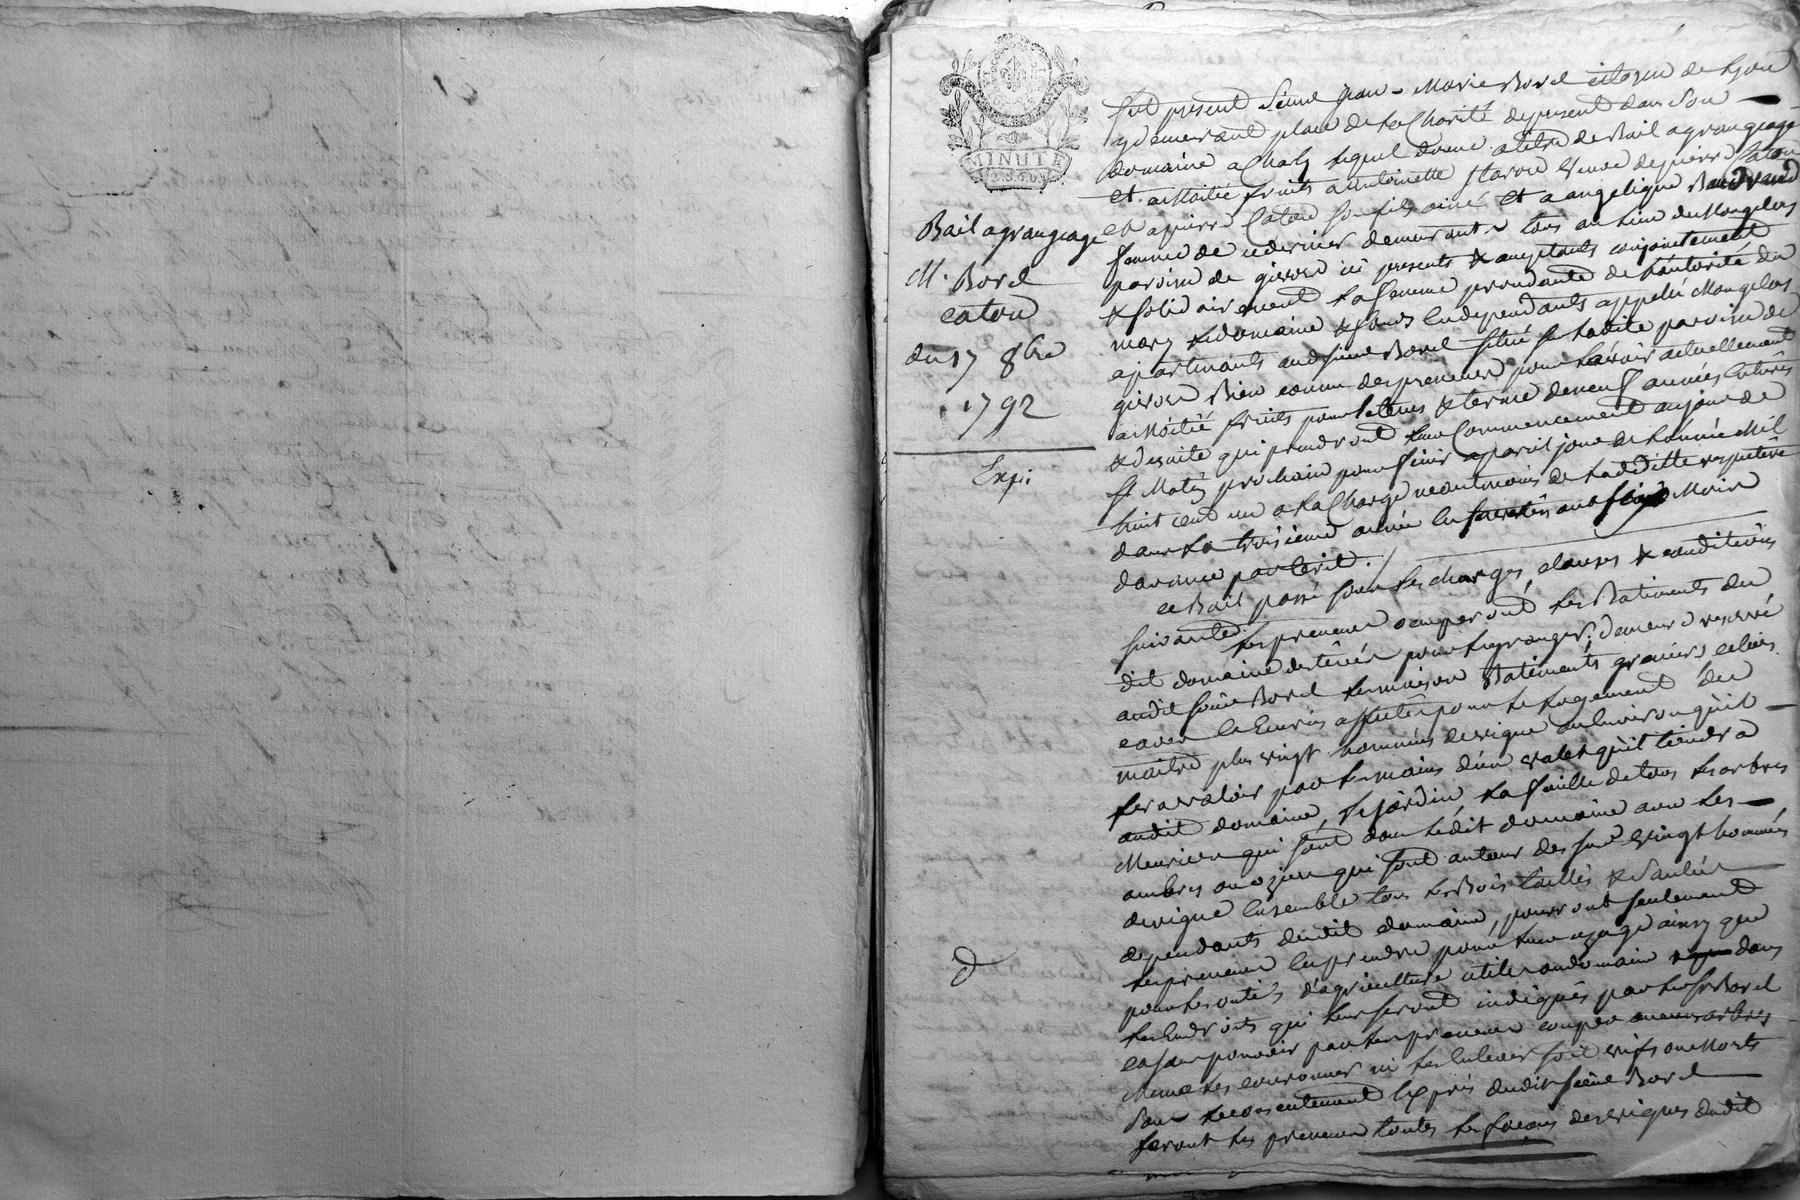 MINUTE
Bail a grangeage
M. Borel
caton
du 17 8bre
1792
Exp:
fut present sieur jean-Marie Borel citoyen de Lyon
y demeurant place de la Charité de present dans son
domaine a Chaly lequel donne a titre de Bail a grangeage
et a Moitié fruits a antoinette veuve de pierre Caton
et a pierre Caton son fils ainé et a angelique
femme de ce dernier demeurants tous au lieu du Mongelas
paroisse de givors ici presents & acceptants conjointement
& solidairement la femme procedante de l'autorité du
mary le domaine & fonds en dependants appellé Mongelas
apartenants audit sieur Borel situé sur ladite paroisse de
givors Bien connu des preneurs pour l'avoir actuellement
a Moitié fruits pour le tems & terme de neuf années entieres
& de suite qui prendront leur Commencement au jour de
St Matin prochain pour finir a pareil jour de l'année Mil
huit cent un a la Charge neantmoins de la dditte respective
dans la troisieme année en Mois
davance par ecrit. /
ce Bail passé sous les charges, clauses & conditions
suivantes. les preneurs occuperont les Batiments du
dit domaine destinés pour le granger, demeure reservé
audit sieur Borel la maison Batiments greniers celiers
caves & Ecuries affectés pour le logement du
maître plus vingt hommées de vigne ou environ qu'il
fera valoir par les mains d'un valet qu'il tiendra
audit domaine, le jardin, la feuille de tous les arbres
Meuriers qui sont dans ledit domaine avec les
ombres ou oziers qui sont autour des sus vingt hommées
de vigne Ensemble tous les Bois taillis & Saulées
dependants dudit domaine, pourront seulement
les preneurs en prendre pour leur uzage ainsy que
pour les outils d'agriculture utiles au domaine dans
les Endroits qui leur seront indiqués par le sr Borel
sans pouvoir par les preneurs couper aucuns arbres
Meme les couronner ni les Enlever soit vifs ou Morts
sans le consentement Exprès dudit sieur Borel
feront les preneurs toutes les façons des vignes dudit